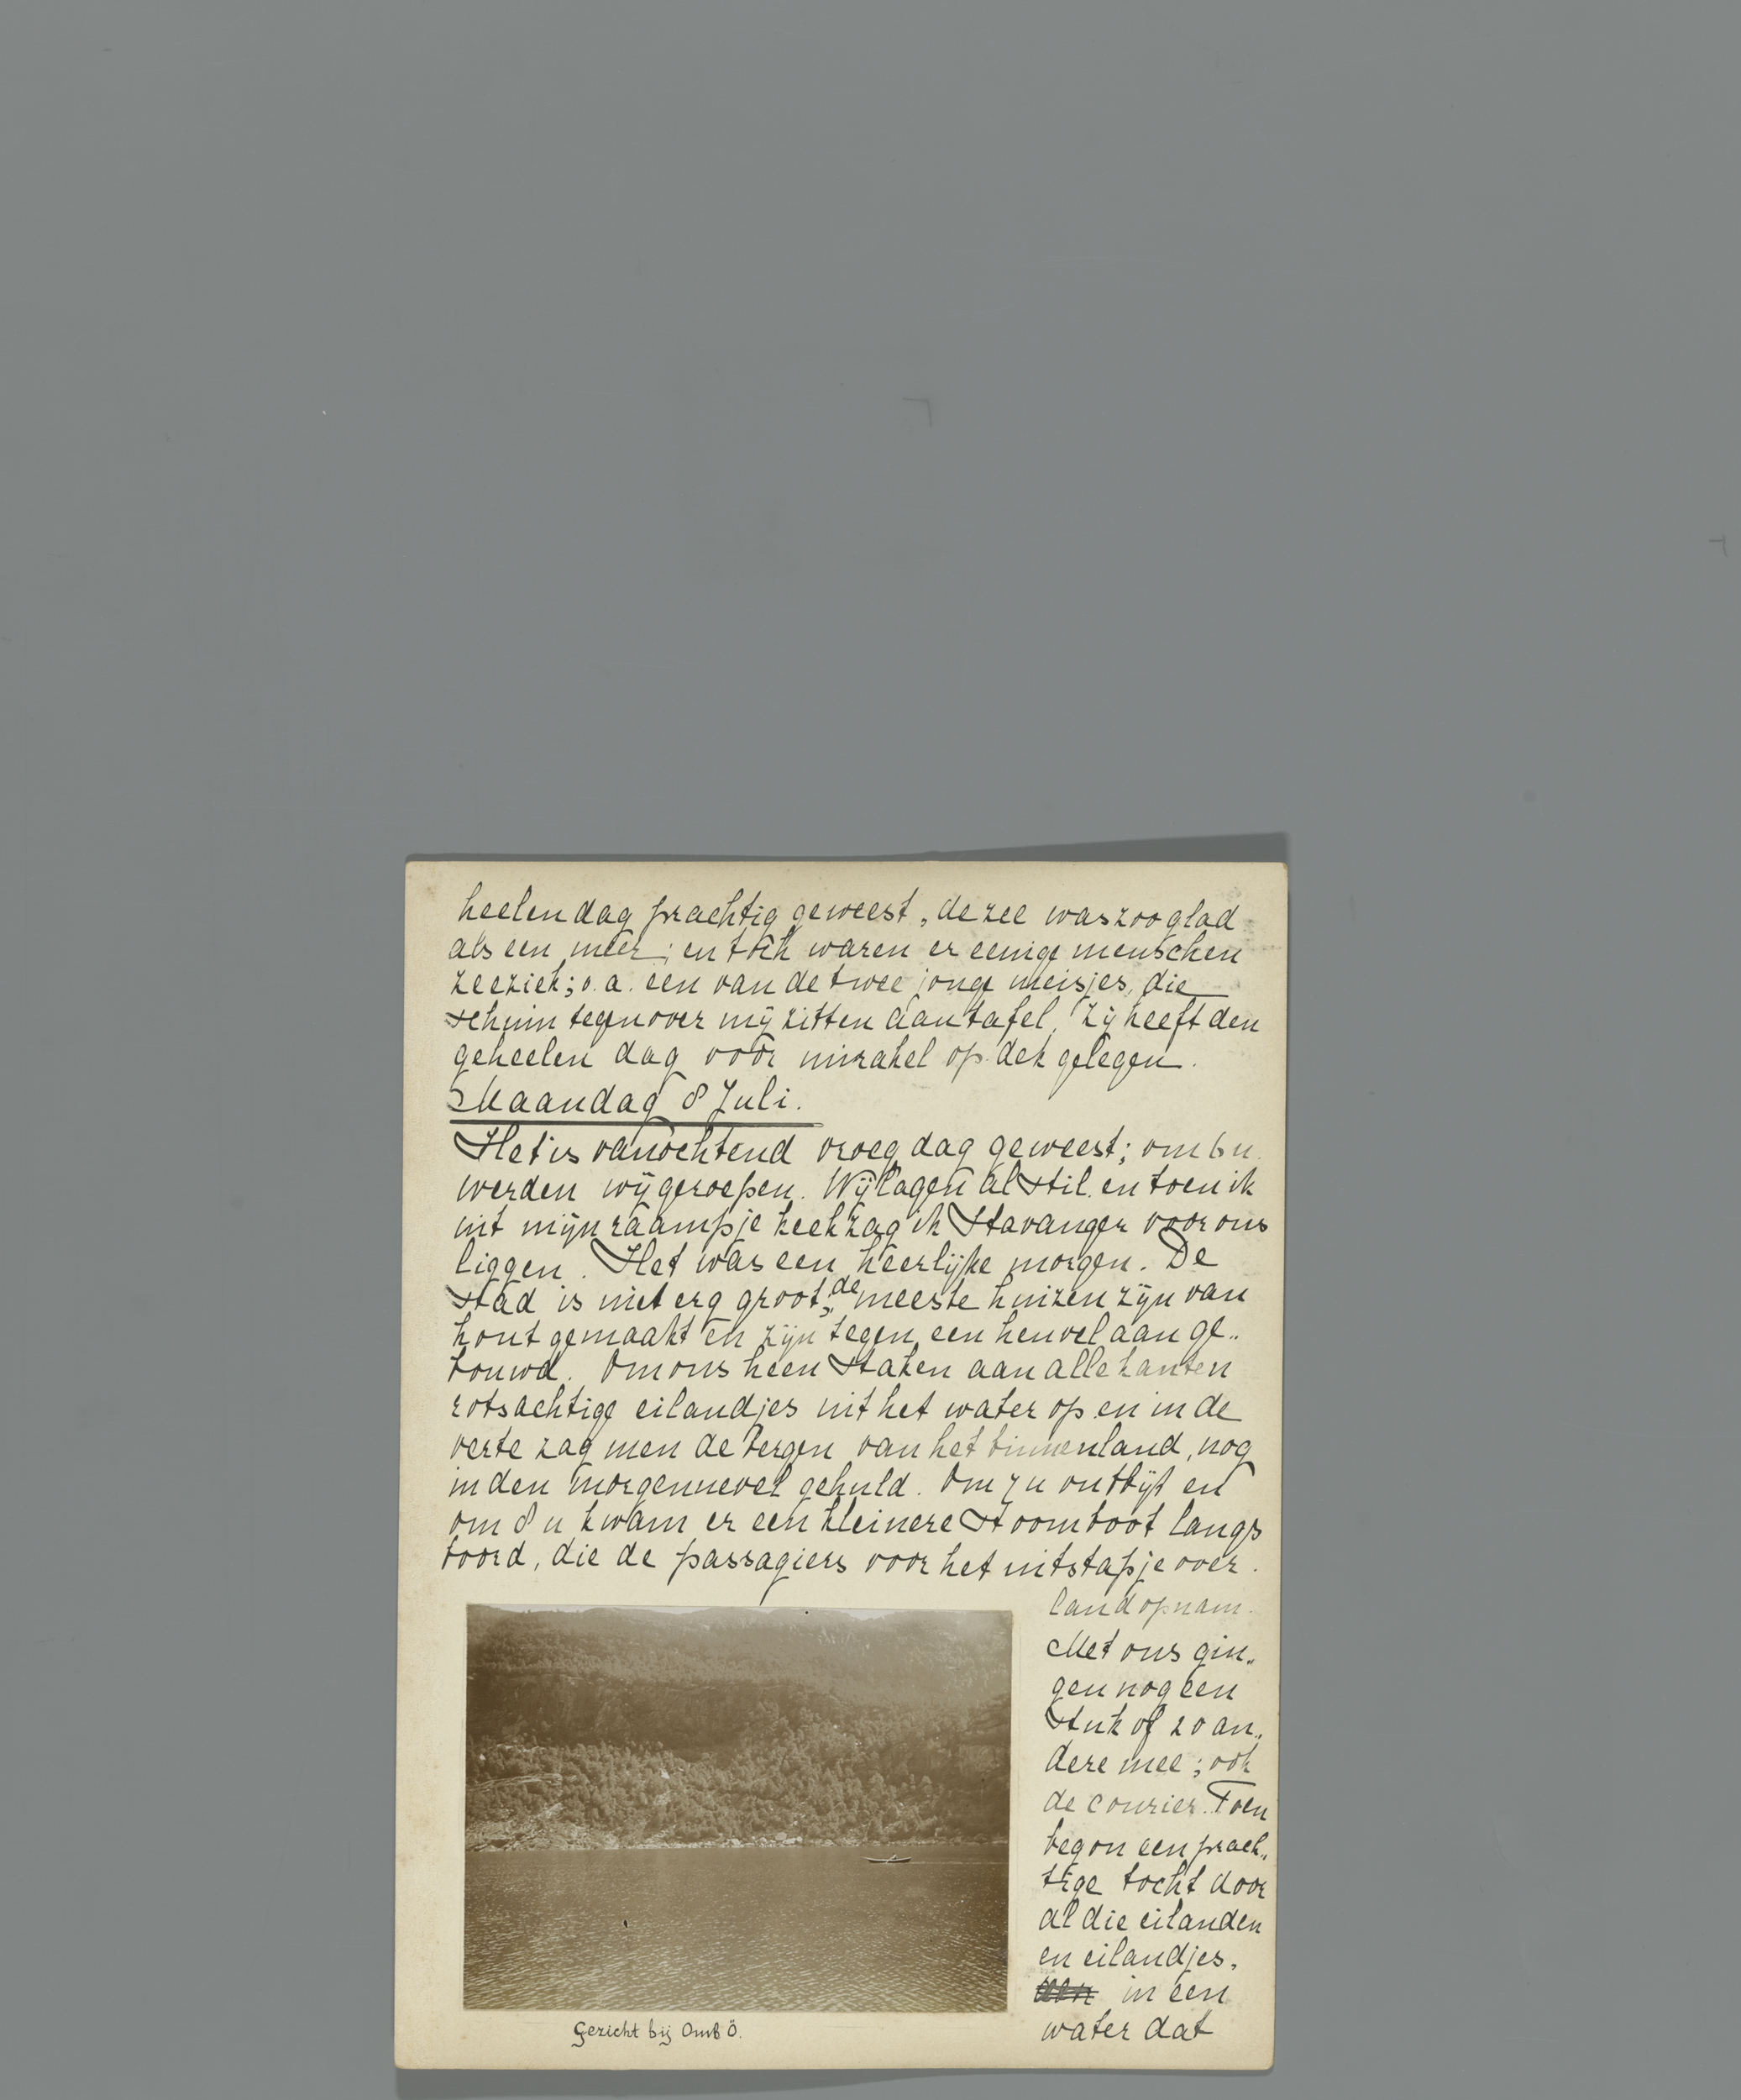 heelen dag prachtig geweest, de zee was zoo glad
als een meer; en toch waren er eenige menschen
zeeziek; o.a. een van de twee jonge meisjes, die
schuin tegenover mij zitten aan tafel. Zij heeft den
geheelen dag voor mirakel op dek gelegen.
Maandag 8 Juli.
Het is vanochtend vroeg dag geweest; om 6 u.
werden wij geroepen. Wij lagen al stil en toen ik
uit mijn raampje keek zag ik Stavanger voor ons
liggen. Het was een heerlijke morgen. De
stad is niet erg groot; de meeste huizen zijn van
hout gemaakt en zijn tegen een heuvel aan ge„
bouwd. Om ons heen staken aan alle kanten
rotsachtige eilandjes uit het water op en in de
verte zag men de bergen van het binnenland, nog
in den morgennevel gehuld. Om 7 u ontbijt en
om 8 u kwam er een kleinere stoomboot langs
boord, die de passagiers voor het uitstapje over.
land opnam.
Met ons gin„
gen nog een
stuk of 20 an„
dere mee; ook
de courier. Toen
begon een prach„
tige tocht door
al die eilanden
en eilandjes,
in een
water dat
Gezicht bij Omb Ö.